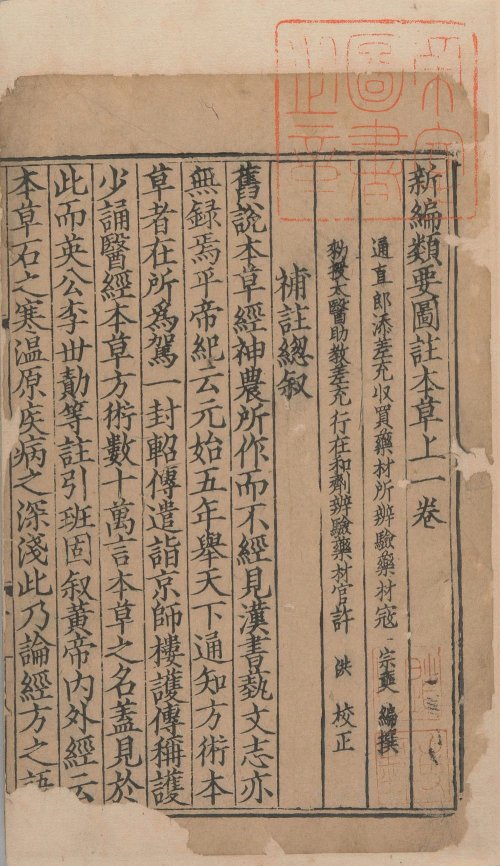 新編類要圖註本草上一卷
通直郎添差充收買藥材所辨驗藥材寇 宗奭 編撰
勑授太醫助教差充行在和劑辨驗藥材官許 洪 校正
補註總叙
舊說本草經神農所作而不經見漢書藝文志亦
無録焉平帝紀云元始五年舉天下通知方術本
草者在所為駕一封軺傳遣詣京師樓護傳稱護
少誦醫經本草方術數十萬言本草之名蓋見於
此而英公李世勣等註引班固叙黃帝內外經云
本草石之寒温原疾病之深淺此乃論經方之語
帝室圖書之章